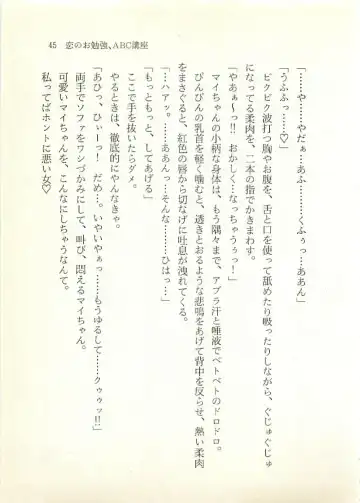 45　恋のお勉強、ABC講座
「……や……やだぁ…あふ……くふぅっ…ああん」
「うふふっ……♡」
ピクピク波打つ胸やお腹を、舌と口を使って舐めたり吸ったりしながら、ぐじゅぐじゅ
になってる柔肉を、二本の指でかきまわす。
「やあぁ〜っ!!　おかしく…なっちゃうぅっ！」
マイちゃんの小柄な身体は、もう隅々まで、アブラ汗と唾液でベトベトのドロドロ。
ぴんぴんの乳首を軽く噛むと、透きとおるような悲鳴をあげて背中を反らせ、熱い柔肉
をまさぐると、紅色の唇から切なげに吐息が洩れてくる。
「…ハアッ。……ああんっ…そんな……ひはっ…」
「もっともっと、してあげる」
ここで手を抜いたらダメ。
やるときは、徹底的にやんなきゃ。
「あひっ、ひぃーっ！　だめ…。いやいやぁっ……もうゆるして……クゥゥッ!!」
両手でソファをワシづかみにして、叫び、悶えるマイちゃん。
可愛いマイちゃんを、こんなにしちゃうなんて。
私ってばホントに悪い女♡